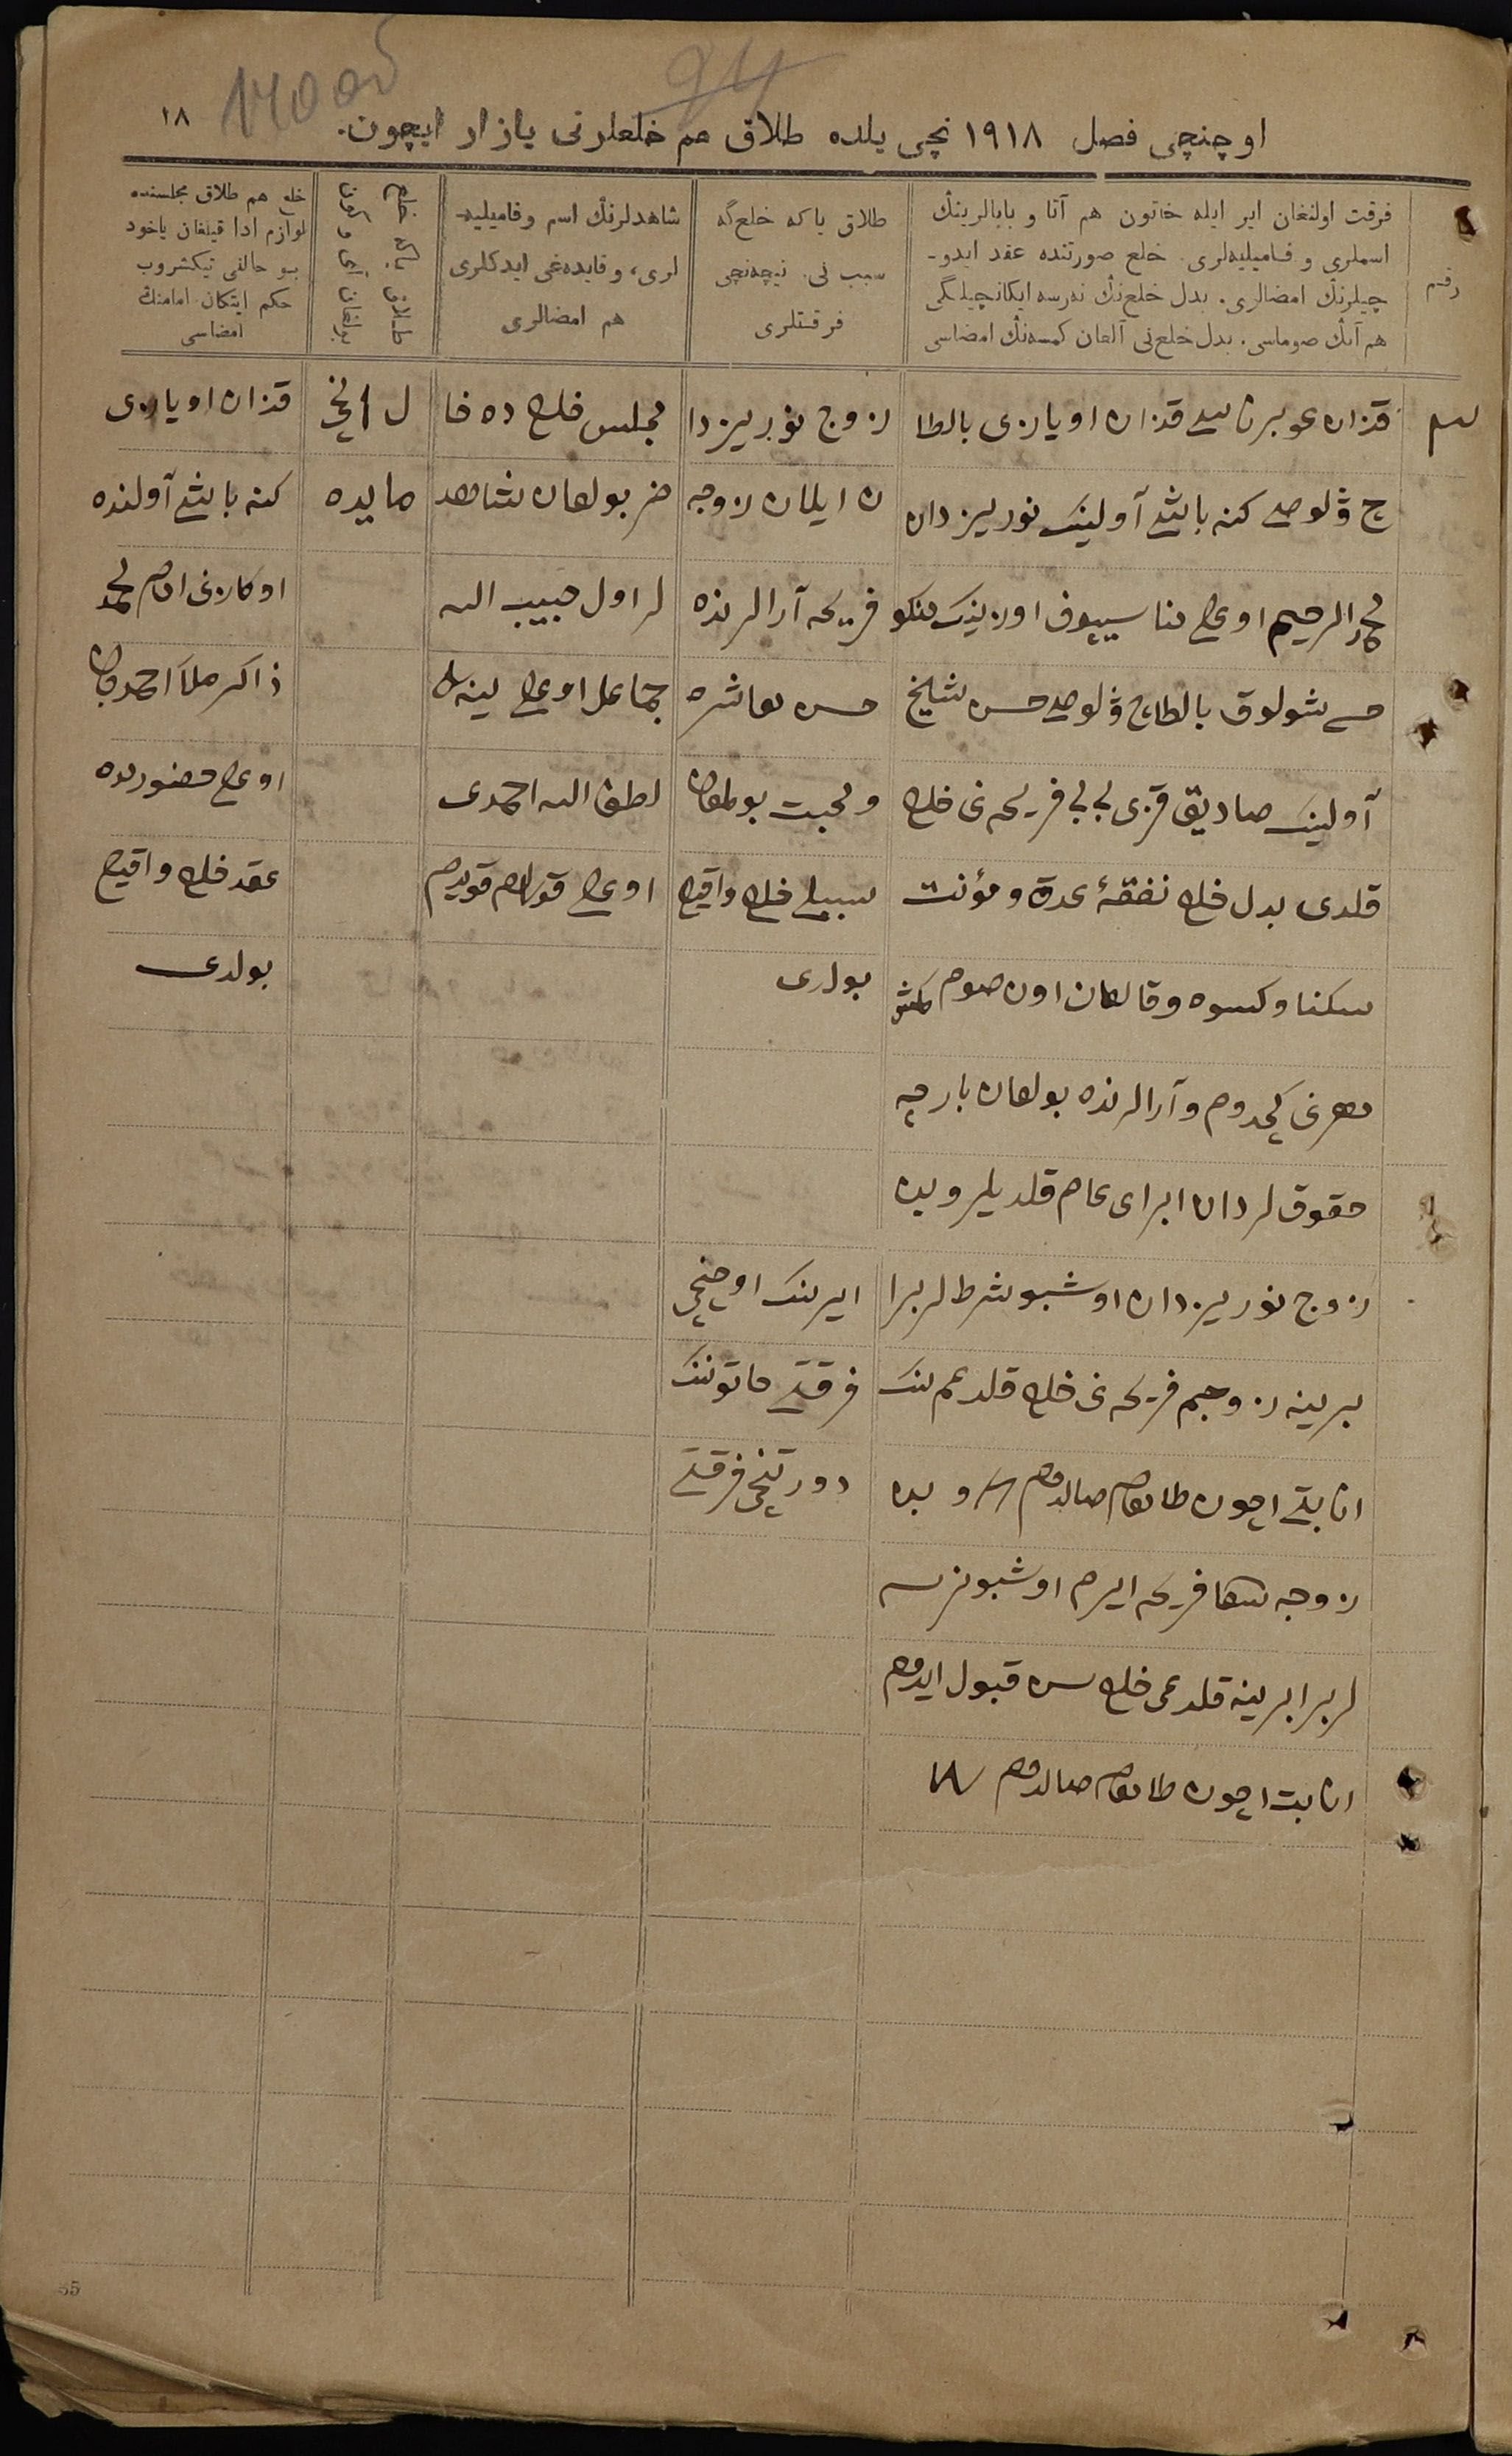 ۱۸
اوچنچی فصل ۱۹۱۸ نچی یلده طلاق هم خلعلرنی یازار ایچون.
رقم
فرقت اولنغان ایر ایله خاتون هم آتا و بابالرینڭ
اسملری و فامیلیه‌لری. خلع صورتنده عقد ایدو-
چیلرنڭ امضالری. بدل خلع‌نڭ نه‌رسه ایکانچیلگی
هم آنڭ صوماسی. بدل خلع‌نی آلغان کمسه‌نڭ امضاسی
طلاق یاکه خلع‌گه
سبب نی. نیچه‌نچی
فرقتلری
شاهدلرنڭ اسم وفامیلیه-
لری، وقایده‌غی ایدکلری
هم امضالری
خلع یاکه طلاق
بولغان آی و کون
خلع هم طلاق مجلسنده
لوازم ادا قیلغان یاخود
بو حالنی تیکشروب
حکم ایتکان امامنڭ
امضاسی
قزان غوبرناسی قزان اویازی بالطا
چ ڤولوصی کنه باشی آولینڭ نوریزدان
محمدالرحیم اوغلی اورینڭ منکو
حسن شیخ شولوق بالطاچ ڤولوصی
آولینڭ صادیق قزی بی بی فریحه‌نی خلع
قلدی بدل خلع نفقهٔ عدة ومؤنت
سکنا وکسوه وقالغان اون صوم
مهرنی کیچدوم وآرالرنده بولغان بارچه
حقوق لردان ابرای عام قلدیلر وبن
زوج نوریزدان اوشبو شرطلر برا
برینه زوجم فریحه‌نی خلع قلدم
اثباتی اچون طامغام صالدوم وبن
زوجه فریحه ایرم اوشبو نرسه
لر برابرینه قلدغی خلعسن قبول ایدوم
اثبات اچون طامغام صالدوم
زوج نوریزدا
ن ایلان زوجه
فریحه آرالرنده
حسن معاشره
ومحبت بولمغان
سببلی خلع واقیع
بولدی
ایرینڭ اوچنچی
فرقتی خاتوننڭ
دورتنچی فرقتی
مجلس خلع ده حا
ضر بولغان شاهد
لر اول حبیب الله
اوغلی
لطف الله احمدی
اوغلی قولام قویدم
۱نچی
مایده
قزان اویازی
کنه باشی آولنده
اوکازنی امام محمد
ذاکر ملا احمدجان
اوغلی حضورنده
عقد خلع واقیع
بولدی